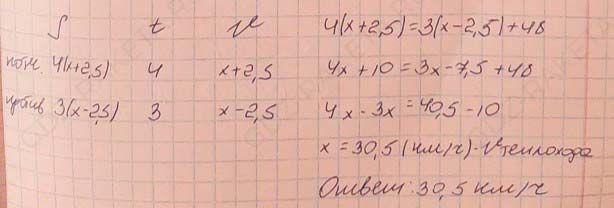 S t V
4(x+2,5) 4 x+2,5
против 3(x-2,5) 3 x-2,5
4(x+2,5)=3(x-2,5)+48
4x+10=3x-7,5+48
4x-3x=40,5-10
x=30,5(км/ч)-V теплохода
Ответ: 30,5 км/ч